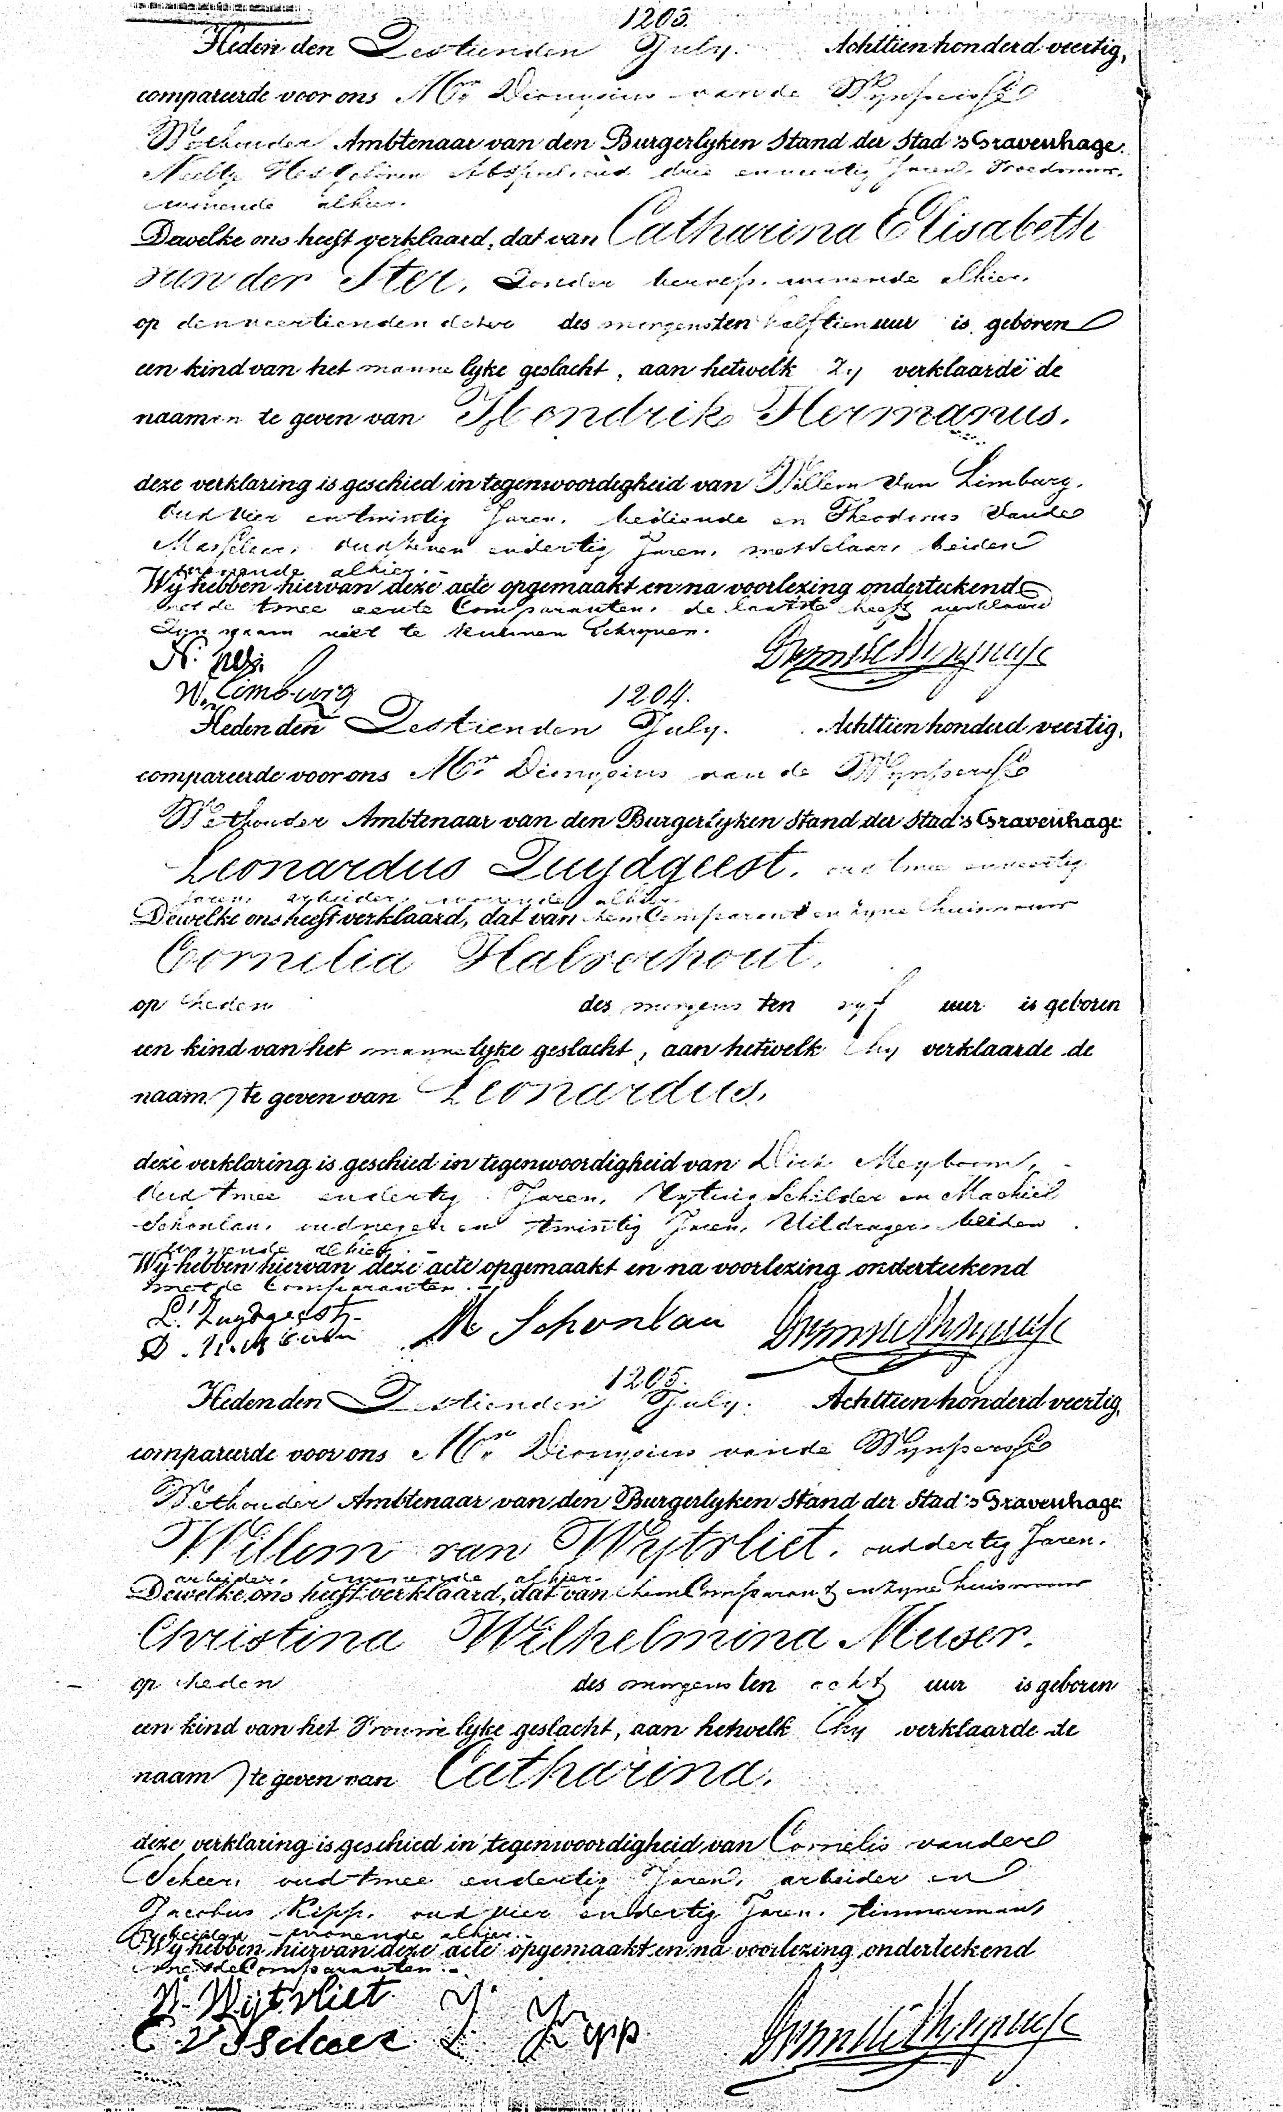 1203.
Heden den Zestienden July. Achttien honderd veertig,
compareerde voor ons Mr Dionysius van de Wynpersse
Wethouder Ambtenaar van den Burgerlyken Stand der Stad 's Gravenhage.
Neeltje Hes oud drie en veertig Jaren, Vroedvrouw,
wonende alhier.
Dewelke ons heeft verklaard, dat van Catharina Elisabeth
van der Ster, Zonder beroep, wonende alhier.
op den veertienden dezer des morgens ten half tien uur is geboren
een kind van het mannelyke geslacht, aan hetwelk Zy verklaarde de
naamen te geven van Hendrik Hermanus.
deze verklaring is geschied in tegenwoordigheid van Willem van Limburg,
Oud Vier en twintig Jaren, bediende en Theodorus vande
oud zeven endertig Jaren, metselaar, beiden
wonende alhier. -
Wy hebben hiervan deze acte opgemaakt en na voorlezing onderteekend
met de twee eerste Comparanten, de laatste heeft verklaard
Zyn naam niet te kunnen Schryven.
N. Hes.
W. Limburg
1204.
Heden den Zestienden July. Achttien honderd veertig,
compareerde voor ons Mr Dionysius van de Wynpersse
Wethouder Ambtenaar van den Burgerlyken Stand der Stad 's Gravenhage
Leonardus Zuydgeest, oud twee en veertig
Jaren, arbeider, wonende alhier
Dewelke ons heeft verklaard, dat van hem Comparant en zyne huisvrouw
Cornelia Halverhout.
op heden des morgens ten vyf uur is geboren
een kind van het mannelyke geslacht, aan hetwelk hy verklaarde de
naam te geven van Leonardus.
deze verklaring is geschied in tegenwoordigheid van Dirk Meyboom,
Oud twee endertig Jaren, Rytuig Schilder en Machiel
Schonlau, oud negen en twintig Jaren, Uitdrager, beiden
wonende alhier. -
Wy hebben hiervan deze acte opgemaakt en na voorlezing onderteekend
met de Comparanten. -
L. Zuydgeest
M Schonlau
1205.
Heden den Zestienden July. Achttien honderd veertig,
compareerde voor ons Mr Dionysius van de Wynpersse
Wethouder Ambtenaar van den Burgerlyken Stand der Stad 's Gravenhage
Willem van Wytvliet, oud dertig Jaren,
arbeider, wonende alhier.
Dewelke ons heeft verklaard, dat van hem Comparant en zyne huisvrouw
Christina Wilhelmina Muser.
op heden des morgens ten acht uur is geboren
een kind van het Vrouwelyke geslacht, aan hetwelk hy verklaarde de
naam te geven van Catharina.
deze verklaring is geschied in tegenwoordigheid van Cornelis vander
Scheer, oud twee endertig Jaren, arbeider en
Jacobus Ripp, oud vier endertig Jaren, timmerman,
beiden wonende alhier. -
Wy hebben hiervan deze acte opgemaakt en na voorlezing onderteekend
met de Comparanten. -
W. Wytvliet
C v Scheer